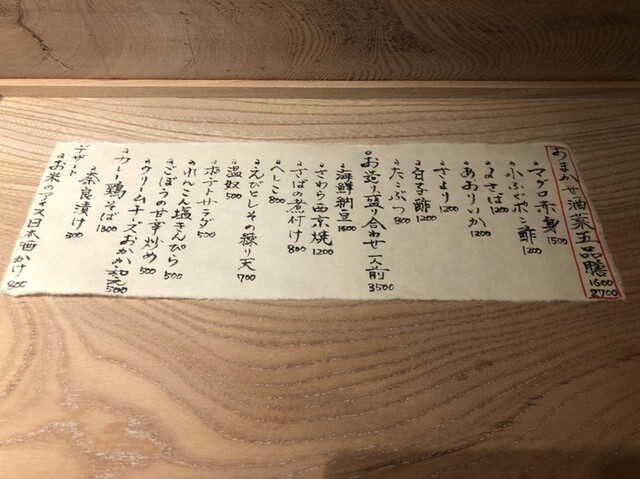 おまかせ酒菜五品膳 1600 2700
マグロ赤身 1500
小ふぐポン酢 1200
〆さば 1200
あおりいか 1200
さより 1200
白子酢 1200
たこぶつ 800
お造り盛り合わせ一人前 3500
海鮮納豆 1600
さわら西京焼 1200
さばの煮付け 800
へしこ 800
えびとしその練り天 700
温奴 500
ポテトサラダ 500
れんこん塩きんぴら 500
ごぼうの甘辛炒め 500
クリームチーズおかか和え 500
カレー鶏そば 1300
奈良漬け 300
デザート
お米のアイス日本酒かけ 800